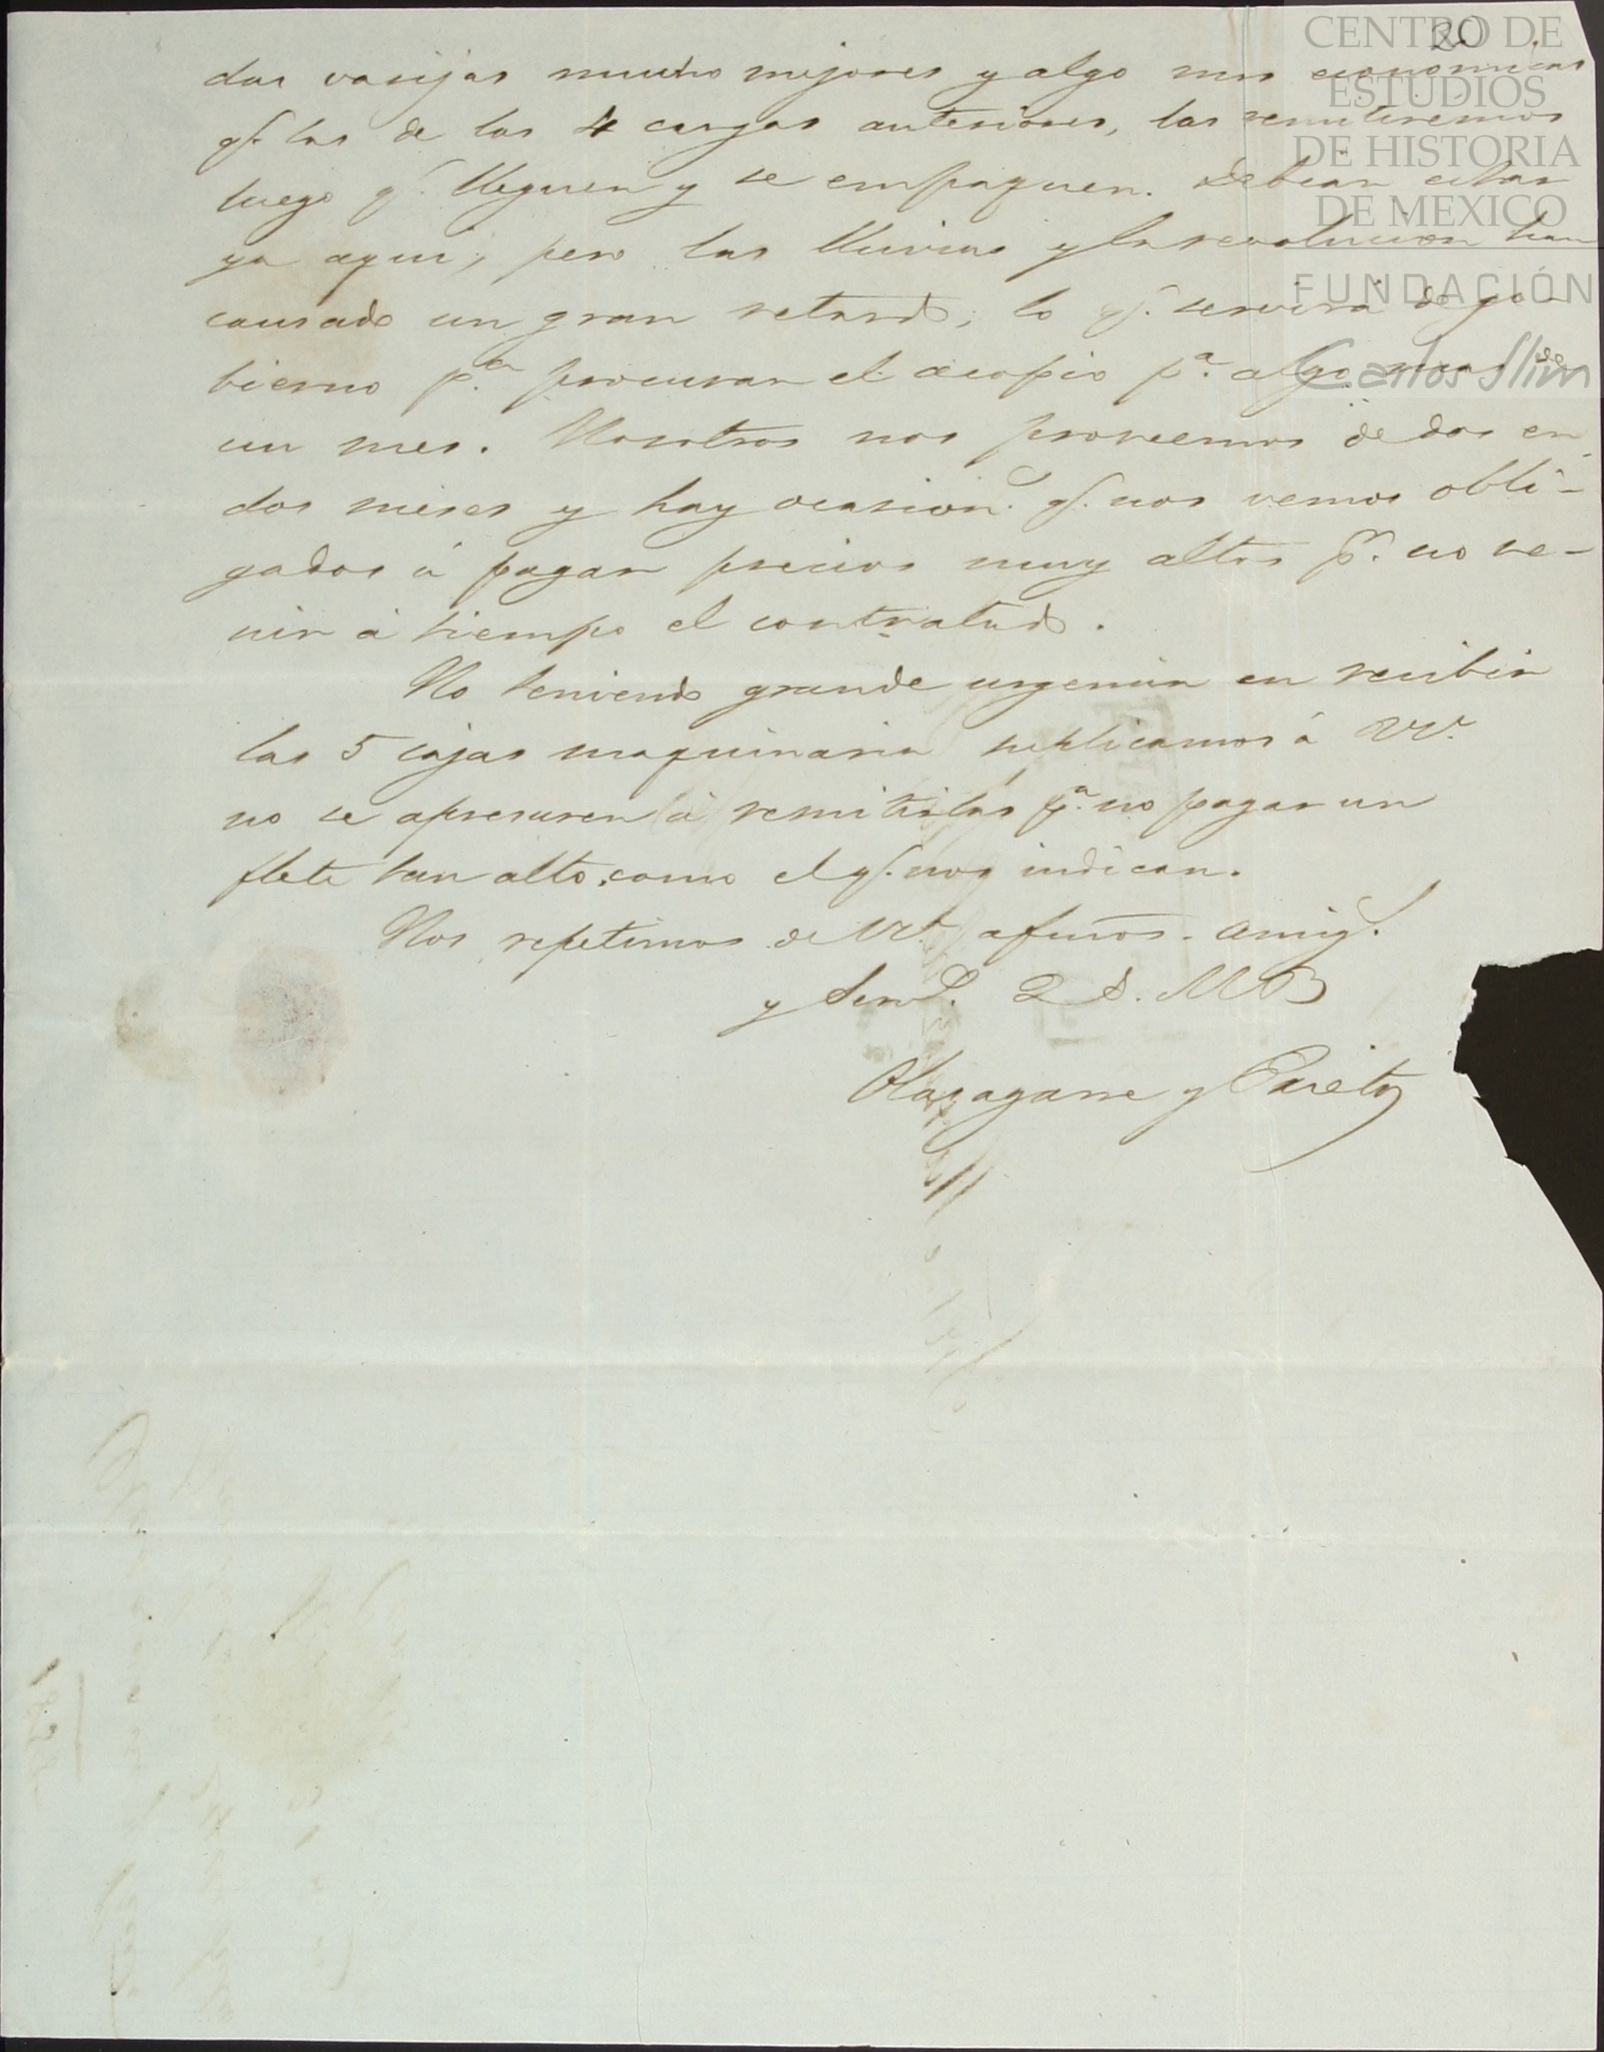 20
das vasijas mucho mejores y algo mas economicas
q.e las de las 4 cargas anteriores, las remitiremos
luego q.e lleguen y se empaquen. Debian estar
ya aqui; pero las lluvias y la revolucion han
causado un gran retardo; lo q.e servirá de go-
bierno p.a procurar el acopio p.a algo mas de
un mes. Nosotros nos proveemos de dos en
dos meses y hay ocasion q.e nos vemos obli-
gados á pagar precios muy altos p.r no ve-
nir á tiempo el contratado.
No teniendo grande urgencia en recibir
las 5 cajas maquinaria suplicamos á VV.
no se apresuren á remitirlas p.a no pagar un
flete tan alto como el q.e nos indican.
Nos repetimos de VV. afmos. amig.s
y Serv.s Q S. M B
Olazagarre y Prieto
CENTRO DE
ESTUDIOS
DE HISTORIA
DE MEXICO
FUNDACIÓN
Carlos Slim